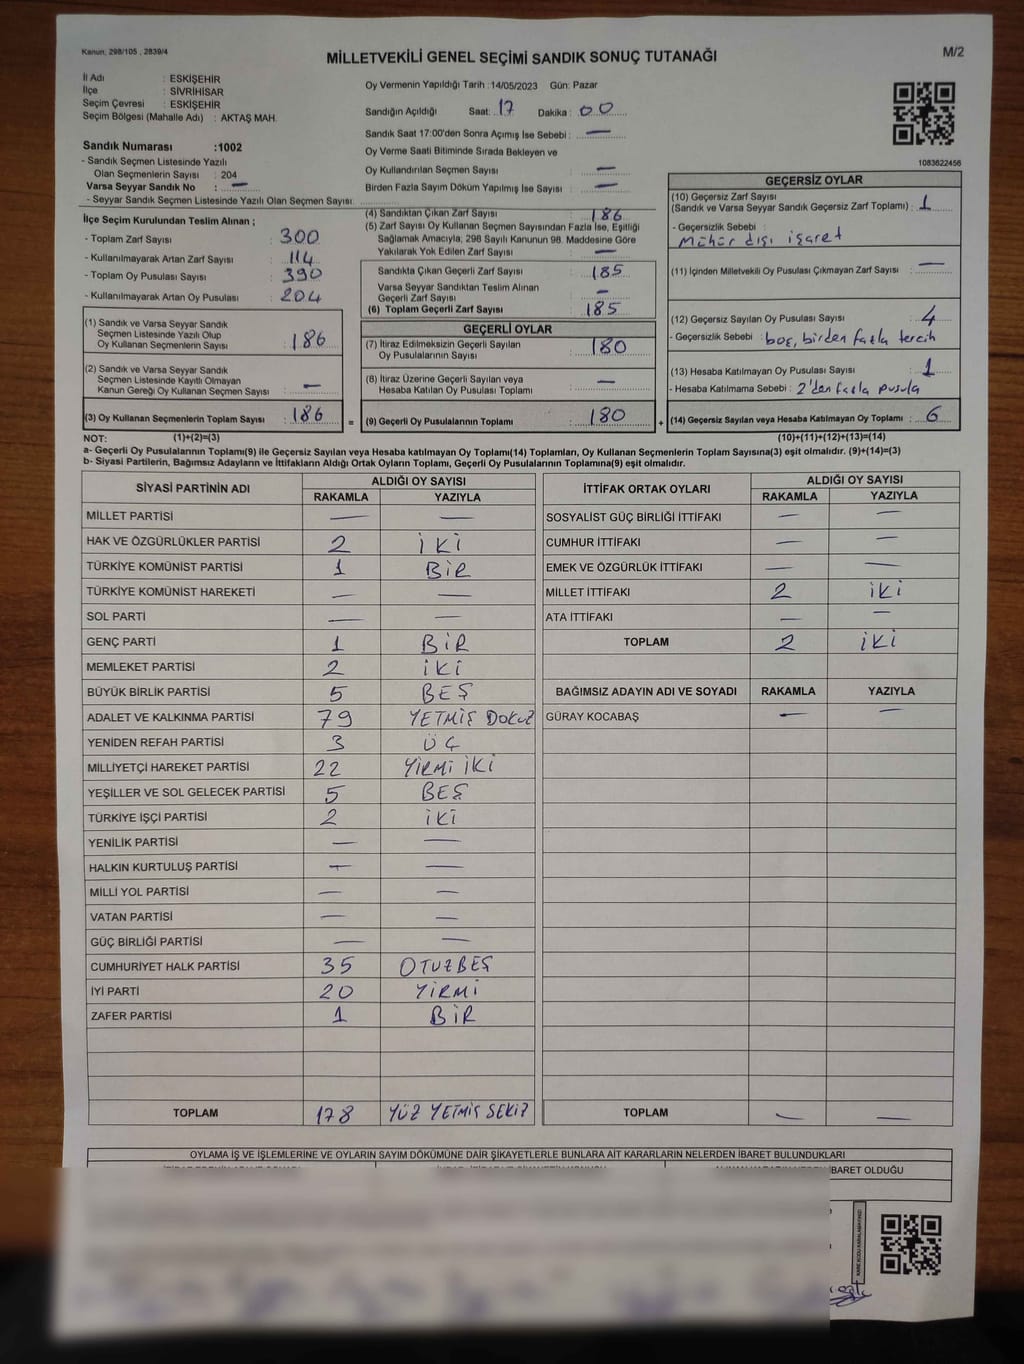 Kanun, 298/105 , 2839/4
MİLLETVEKİLİ GENEL SEÇİMİ SANDIK SONUÇ TUTANAĞI
M/2
İl Adı : ESKİŞEHİR
İlçe : SİVRİHİSAR
Seçim Çevresi : ESKİŞEHİR
Seçim Bölgesi (Mahalle Adı) : AKTAŞ MAH.
Sandık Numarası :1002
- Sandık Seçmen Listesinde Yazılı
Olan Seçmenlerin Sayısı : 204
Varsa Seyyar Sandık No : —
- Seyyar Sandık Seçmen Listesinde Yazılı Olan Seçmen Sayısı:
Oy Vermenin Yapıldığı Tarih :14/05/2023 Gün: Pazar
Sandığın Açıldığı Saat: 17 Dakika : 00
Sandık Saat 17:00'den Sonra Açımış İse Sebebi : —
Oy Verme Saati Bitiminde Sırada Bekleyen ve
Oy Kullandırılan Seçmen Sayısı —
Birden Fazla Sayım Döküm Yapılmış İse Sayısı : —
1083622456
İlçe Seçim Kurulundan Teslim Alınan ;
- Toplam Zarf Sayısı : 300
- Kullanılmayarak Artan Zarf Sayısı : 114
- Toplam Oy Pusulası Sayısı : 390
- Kullanılmayarak Artan Oy Pusulası : 204
(1) Sandık ve Varsa Seyyar Sandık
Seçmen Listesinde Yazılı Olup
Oy Kullanan Seçmenlerin Sayısı : 186
(2) Sandık ve Varsa Seyyar Sandık
Seçmen Listesinde Kayıtlı Olmayan
Kanun Gereği Oy Kullanan Seçmen Sayısı : —
(3) Oy Kullanan Seçmenlerin Toplam Sayısı : 186
(4) Sandıktan Çıkan Zarf Sayısı : 186
(5) Zarf Sayısı Oy Kullanan Seçmen Sayısından Fazla İse, Eşitliği
Sağlamak Amacıyla, 298 Sayılı Kanunun 98. Maddesine Göre
Yakılarak Yok Edilen Zarf Sayısı : —
Sandıkta Çıkan Geçerli Zarf Sayısı : 185
Varsa Seyyar Sandıktan Teslim Alınan
Geçerli Zarf Sayısı : —
(6) Toplam Geçerli Zarf Sayısı : 185
GEÇERLİ OYLAR
(7) İtiraz Edilmeksizin Geçerli Sayılan
Oy Pusulalarının Sayısı : 180
(8) İtiraz Üzerine Geçerli Sayılan veya
Hesaba Katılan Oy Pusulaları Toplamı : —
= (9) Geçerli Oy Pusulalarının Toplamı : 180 +
GEÇERSİZ OYLAR
(10) Geçersiz Zarf Sayısı
(Sandık ve Varsa Seyyar Sandık Geçersiz Zarf Toplamı) : 1
- Geçersizlik Sebebi :
Mühür dışı işaret
(11) İçinden Milletvekili Oy Pusulası Çıkmayan Zarf Sayısı : —
(12) Geçersiz Sayılan Oy Pusulası Sayısı : 4
- Geçersizlik Sebebi : boş, birden fazla tercih
(13) Hesaba Katılmayan Oy Pusulası Sayısı : 1
- Hesaba Katılmama Sebebi : 2'den fazla pusula
(14) Geçersiz Sayılan veya Hesaba Katılmayan Oy Toplamı : 6
NOT: (1)+(2)=(3) (10)+(11)+(12)+(13)=(14)
a- Geçerli Oy Pusulalarının Toplamı(9) ile Geçersiz Sayılan veya Hesaba katılmayan Oy Toplamı(14) Toplamları, Oy Kullanan Seçmenlerin Toplam Sayısına(3) eşit olmalıdır. (9)+(14)=(3)
b- Siyasi Partilerin, Bağımsız Adayların ve İttifakların Aldığı Ortak Oyların Toplamı, Geçerli Oy Pusulalarının Toplamına(9) eşit olmalıdır.
SİYASİ PARTİNİN ADI ALDIĞI OY SAYISI
RAKAMLA YAZIYLA
MİLLET PARTİSİ — —
HAK VE ÖZGÜRLÜKLER PARTİSİ 2 İKİ
TÜRKİYE KOMÜNİST PARTİSİ 1 BİR
TÜRKİYE KOMÜNİST HAREKETİ — —
SOL PARTİ — —
GENÇ PARTİ 1 BİR
MEMLEKET PARTİSİ 2 İKİ
BÜYÜK BİRLİK PARTİSİ 5 BEŞ
ADALET VE KALKINMA PARTİSİ 79 YETMİŞ DOKUZ
YENİDEN REFAH PARTİSİ 3 ÜÇ
MİLLİYETÇİ HAREKET PARTİSİ 22 YİRMİ İKİ
YEŞİLLER VE SOL GELECEK PARTİSİ 5 BEŞ
TÜRKİYE İŞÇİ PARTİSİ 2 İKİ
YENİLİK PARTİSİ — —
HALKIN KURTULUŞ PARTİSİ — —
MİLLİ YOL PARTİSİ — —
VATAN PARTİSİ — —
GÜÇ BİRLİĞİ PARTİSİ — —
CUMHURİYET HALK PARTİSİ 35 OTUZBEŞ
İYİ PARTİ 20 YİRMİ
ZAFER PARTİSİ 1 BİR
TOPLAM 178 YÜZ YETMİŞ SEKİZ
İTTİFAK ORTAK OYLARI ALDIĞI OY SAYISI
RAKAMLA YAZIYLA
SOSYALİST GÜÇ BİRLİĞİ İTTİFAKI — —
CUMHUR İTTİFAKI — —
EMEK VE ÖZGÜRLÜK İTTİFAKI — —
MİLLET İTTİFAKI 2 İKİ
ATA İTTİFAKI — —
TOPLAM 2 İKİ
BAĞIMSIZ ADAYIN ADI VE SOYADI RAKAMLA YAZIYLA
GÜRAY KOCABAŞ — —
TOPLAM — —
OYLAMA İŞ VE İŞLEMLERİNE VE OYLARIN SAYIM DÖKÜMÜNE DAİR ŞİKAYETLERLE BUNLARA AİT KARARLARIN NELERDEN İBARET BULUNDUKLARI
İBARET OLDUĞU